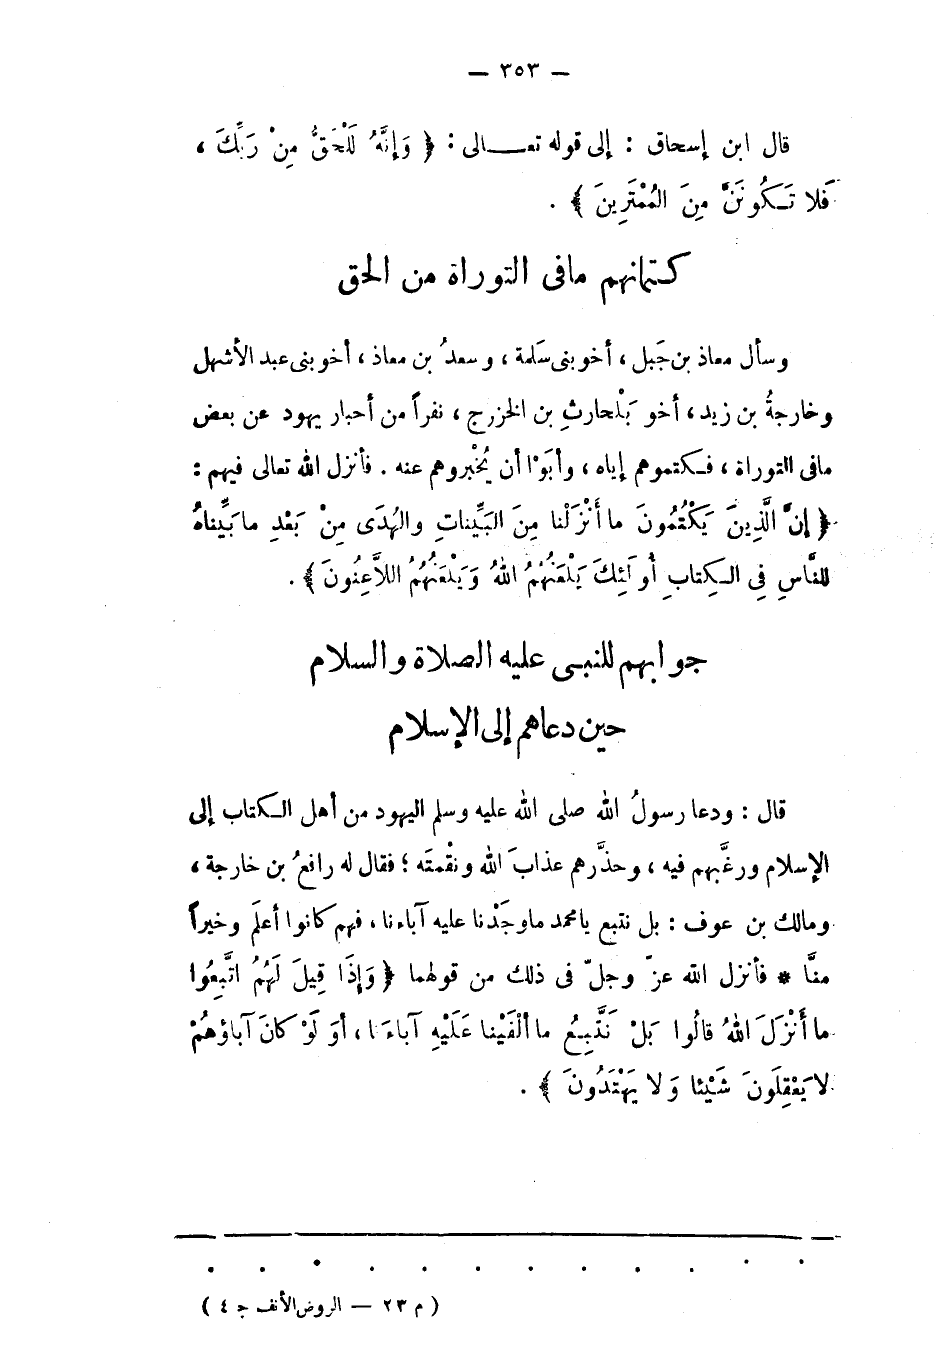 — ٣٥٣ —
قال ابن إسحاق : إلى قوله تعـــالى : ﴿ وَإِنَّهُ لَلْحَقُّ مِنْ رَبِّكَ ،
فَلا تَـكُونَنَّ مِنَ المُمْتَرِينَ ﴾ .
كـتمانهم مافى التوراة من الحق
وسأل معاذ بن جَبل ، أخو بنى سَلمة ، وسعدُ بن معاذ ، أخو بنى عبد الأشهل
وخارجةُ بن زيد ، أخو بَلْحارثِ بن الخزرج ، نفراً من أحبار يهود عن بعض
مافى التوراة ، فـكتموهم إياه ، وأبَوْا أن يُخْبروهم عنه . فأنزل الله تعالى فيهم :
﴿ إنَّ الَّذِينَ يَكْتُمُونَ ما أَنْزَلْنا مِنَ البَيِّناتِ والهُدَى مِنْ بَعْدِ ما بَيَّناهُ
للنَّاسِ فِى الـكِتابِ أُولَئِكَ يَلْعَنُهُمُ اللهُ وَيَلْعَنُهُمُ اللاَّعِنُونَ ﴾ .
جوابهم للنبـى عليه الصلاة والسلام
حين دعاهم إلى الإسلام
قال : ودعا رسولُ الله صلى الله عليه وسلم اليهود من أهل الـكتاب إلى
الإسلام ورغَّبهم فيه ، وحذَّرهم عذابَ الله ونقْمتَه ؛ فقال له رافعُ بن خارجة ،
ومالك بن عوف : بل نتبع يامحمد ماوجَدْنا عليه آباءنا ، فهم كانوا أعلَم وخيراً
منَّا * فأنزل الله عزّ وجلّ فى ذلك من قولهما ﴿ وَإِذَا قِيلَ لَهُمُ اتَّبِعُوا
ما أَنْزَلَ اللهُ قالُوا بَلْ نَتَّبِـعُ ما ألْفَيْنا عَلَيْهِ آباءَنا ، أوَ لَوْ كانَ آباؤُهُمْ
لا يَعْقِلُونَ شَيْئا وَلا يَهْتَدُونَ ﴾ .
. . . . . . . . . . . .
( م ٢٣ — الروض الأنف ج ٤ )